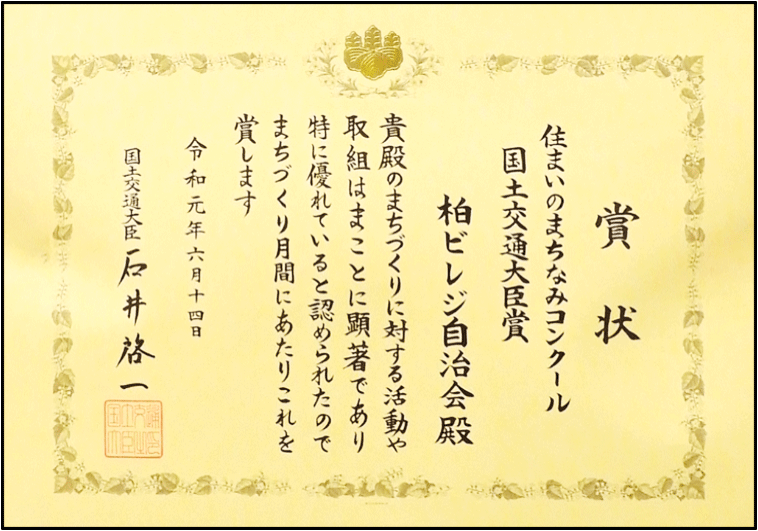 賞状
住まいのまちなみコンクール
国土交通大臣賞
柏ビレジ自治会殿
貴殿のまちづくりに対する活動や
取組はまことに顕著であり
特に優れていると認められたので
まちづくり月間にあたりこれを
賞します
令和元年六月十四日
国土交通大臣 石井啓一